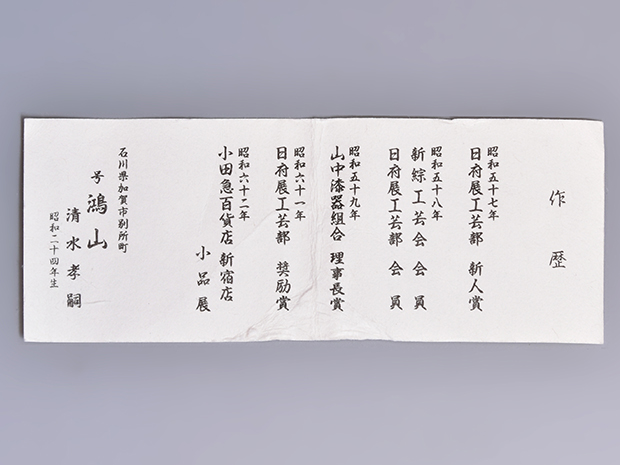 作歴
昭和五十七年
日府展工芸部 新人賞
昭和五十八年
新綜工芸会 会員
日府展工芸部 会員
昭和五十九年
山中漆器組合 理事長賞
昭和六十一年
日府展工芸部 奨励賞
昭和六十二年
小田急百貨店 新宿店
小品展
石川県加賀市別所町
号 鴻山
清水孝嗣
昭和二十四年生